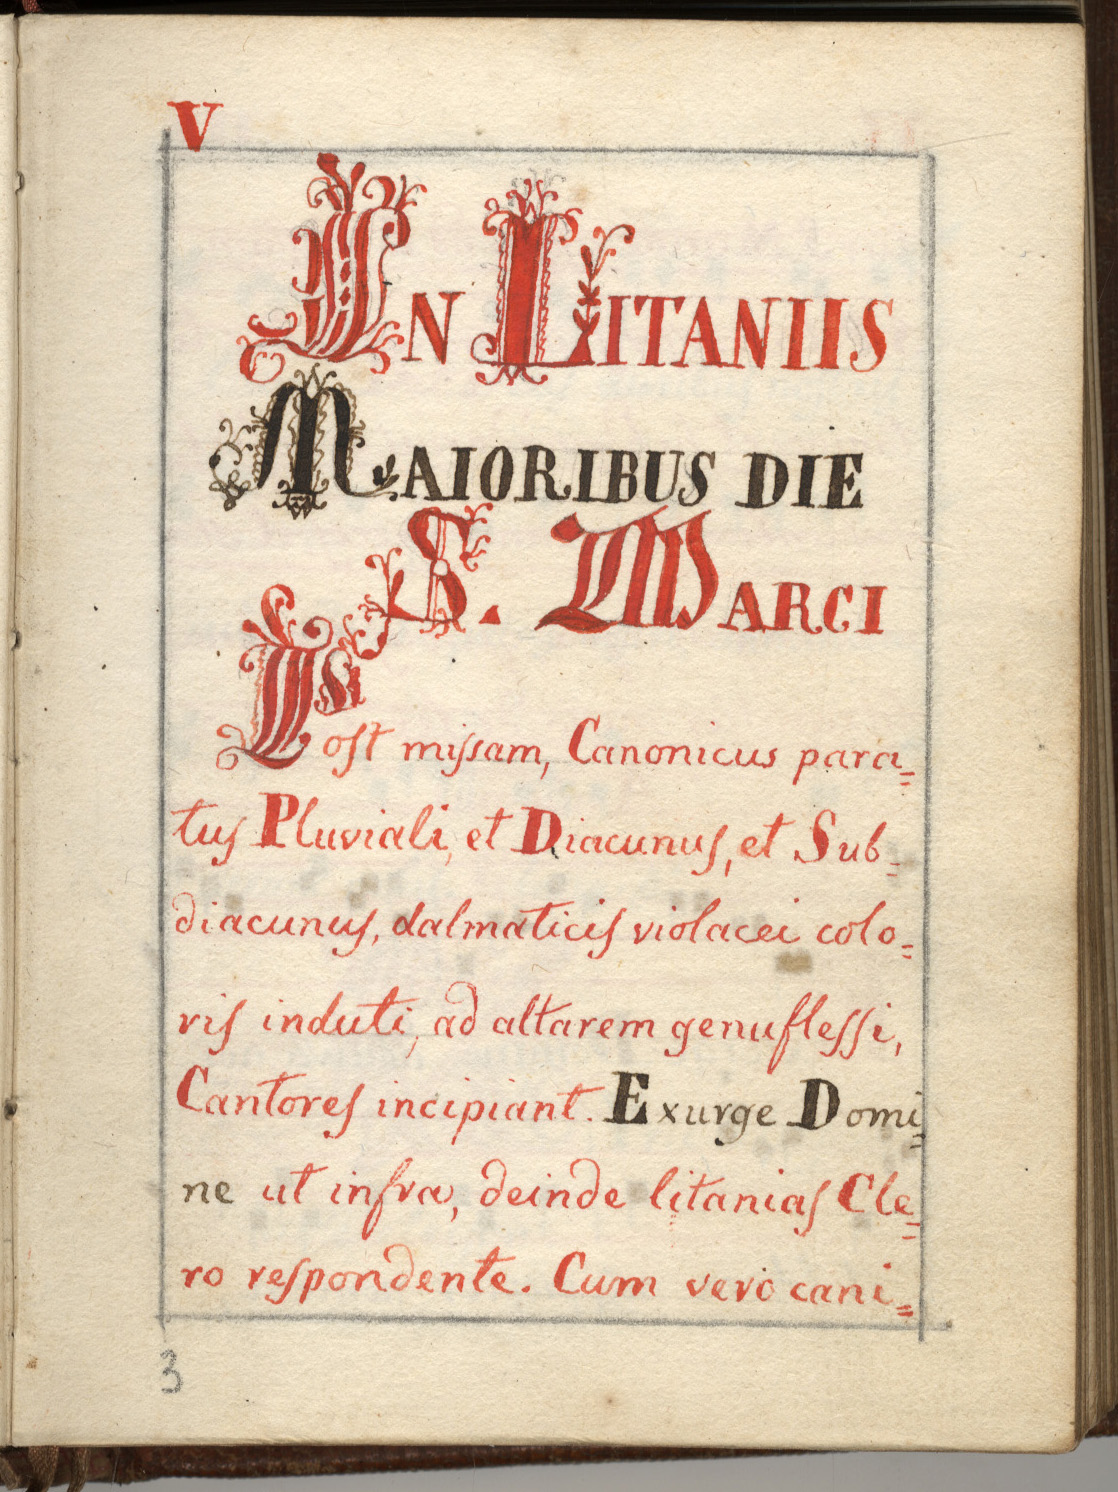 V
IN LITANIIS
MAIORIBUS DIE
S. MARCI
Post missam, Canonicus para=
tus Pluviali, et Diacunus, et Sub=
diacunus, dalmaticis violacei colo=
ris induti, ad altarem genuflessi,
Cantores incipiant. Exurge Domi=
ne ut infra, deinde litanias Cle=
ro respondente. Cum vero cani=
3